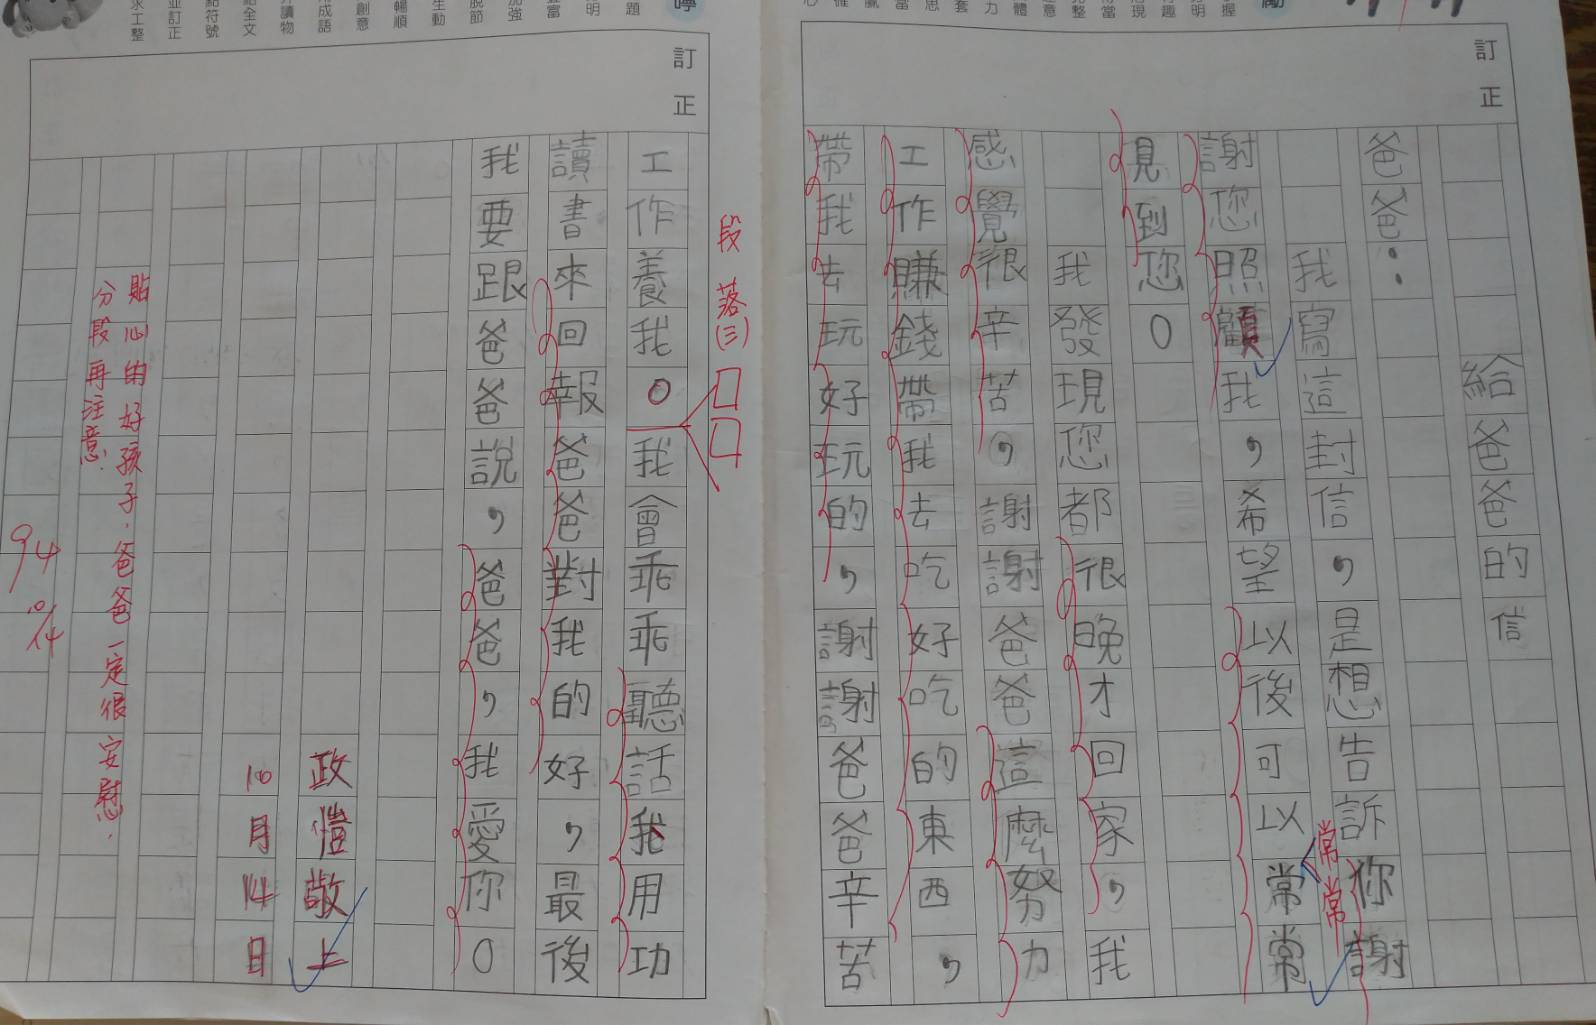 訂正
給爸爸的信
爸爸：
我寫這封信，是想告訴你謝
謝您照顧我，希望以後可以常常
常常
見到您。
我發現您都很晚才回家，我
感覺很辛苦，謝謝爸爸這麼努力
工作賺錢帶我去吃好吃的東西，
帶我去玩好玩的，謝謝爸爸辛苦
訂正
段落(三)
工作養我。我會乖乖聽話我用功
讀書來回報爸爸對我的好，最後
我要跟爸爸說，爸爸，我愛你。
政愷敬上
10月14日
貼心的好孩子.爸爸一定很安慰.
分段再注意.
94
10/14